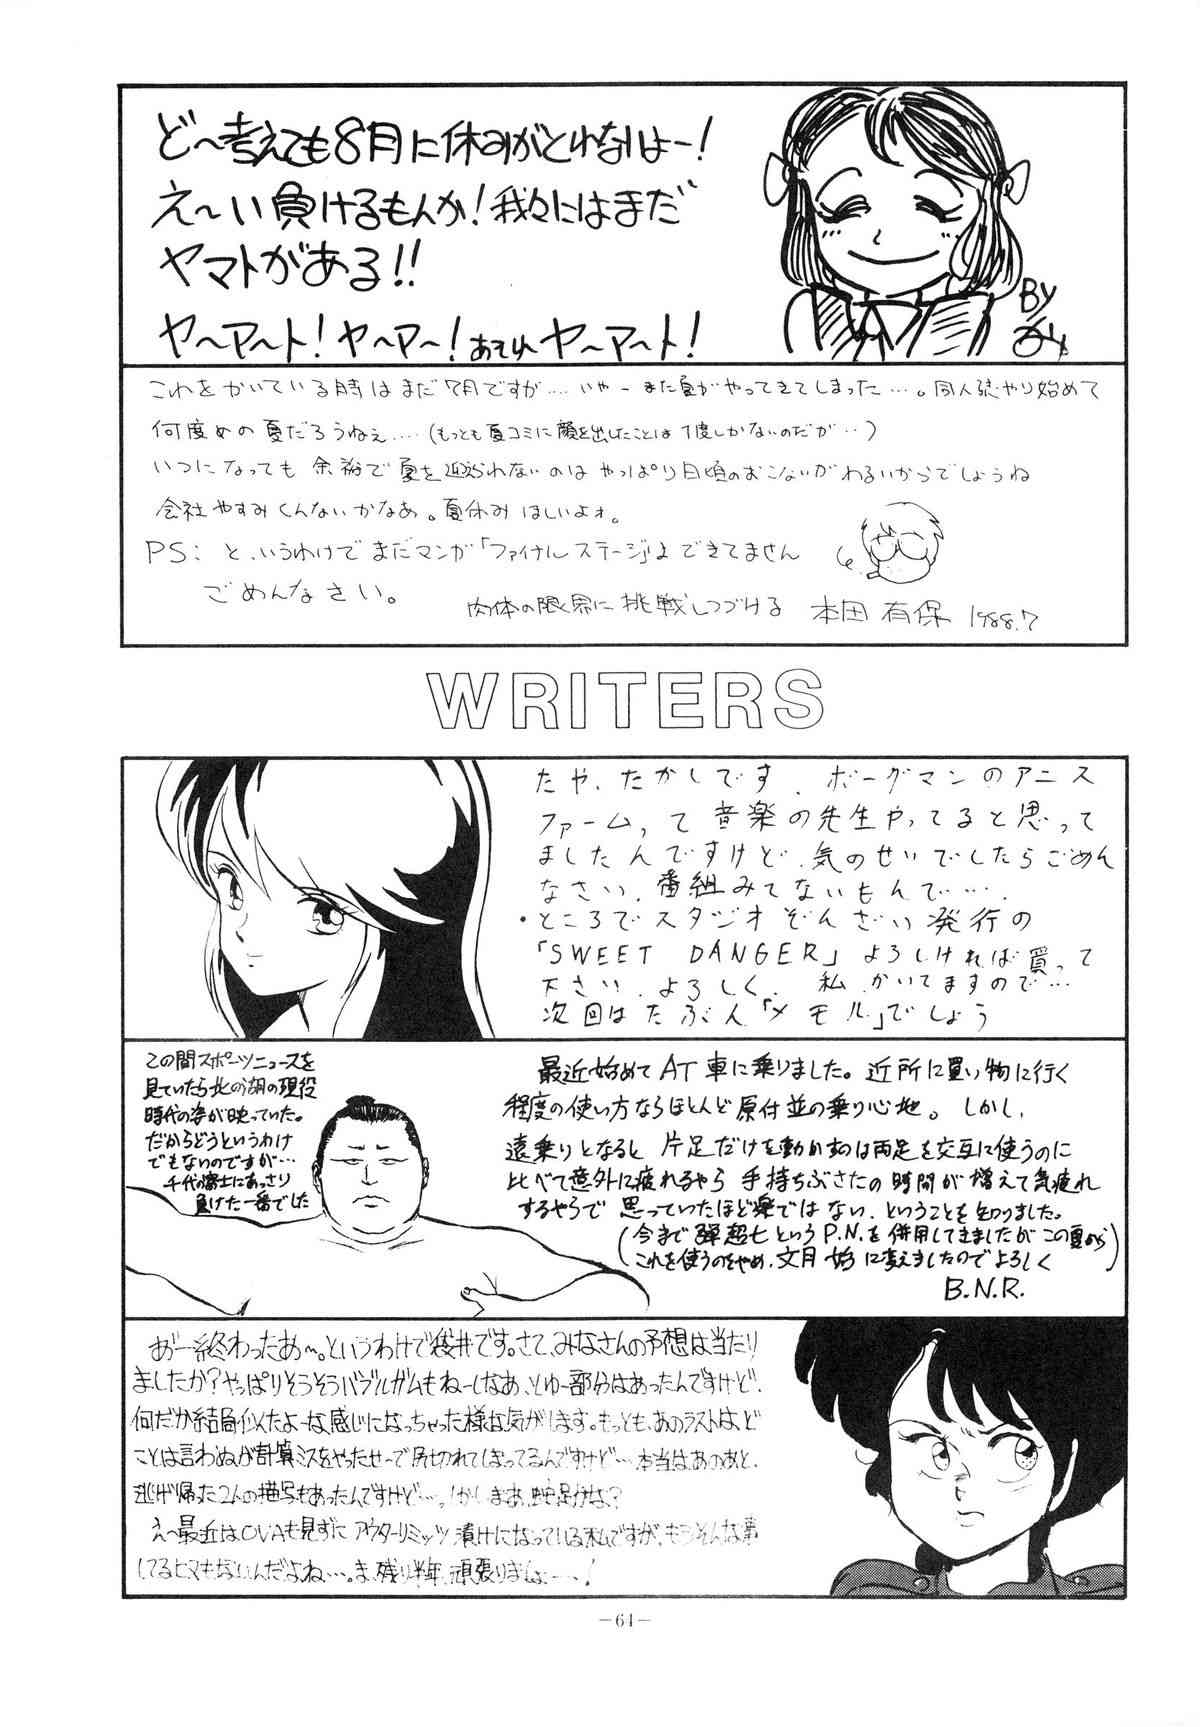 ど〜考えても8月に休みがとれないよー!
え〜い負けるもんか!我々にはまだ
ヤマトがある!!
ヤ〜ア〜ト!ヤ〜ア〜! ヤ〜ア〜ト!
BY
これをかいている時はまだ7月ですが‥‥いやーまた夏がやってきてしまった‥‥。同人誌やり始めて
何度めの夏だろうねぇ‥‥(もっとも夏コミに顔を出したことは1度しかないのだが‥)
いつになっても余裕で夏を迎えられないのはやっぱり日頃のおこないがわるいからでしょうね
会社やすみくんないかなあ。夏休みほしいよォ。
PS: と、いうわけでまだマンガ「ファイナルステージ」はできてません
ごめんなさい。
肉体の限界に挑戦しつづける 本田有保 1988.7
WRITERS
たや、たかしです。ボーグマンのアニス
ファームって音楽の先生やってると思って
ましたんですけど、気のせいでしたらごめん
なさい、番組みてないもんで‥‥.
・ところでスタジオぞんざい発行の
「SWEET DANGER」よろしければ買って
下さい、よろしく、私、かいてますので‥‥
次回はたぶん「メモル」でしょう
この間スポーツニュースを
見ていたら北の湖の現役
時代の姿が映っていた。
だからどうというわけ
でもないのですが‥‥
千代の富士にあっさり
負けた一番でした
最近始めてAT車に乗りました。近所に買い物に行く
程度の使い方ならほとんど原付並の乗り心地。しかし、
遠乗りとなると片足だけを動かすのは両足を交互に使うのに
比べて意外に疲れるやら手持ちぶさたの時間が増えて気疲れ
するやらで思っていたほど楽ではない、ということを知りました。
(今まで弾超七というP.N.を併用してきましたがこの夏から
これを使うのをやめ、文月 始に変えましたのでよろしく)
B.N.R.
あ゛ー終わったあ〜。というわけで袋井です。さて、みなさんの予想は当たり
ましたか?やっぱりそうそうバブルガムもねーしなあ、とゆー部分はあったんですけど、
何だか結局似たよーな感じになっちゃった様な気がします。もっとも、あのラストは、ど
ことは言わぬが計算ミスをやったせーで尻切れてしまってるんですけど‥‥本当はあのあと、
逃げ帰った2人の描写もあったんですけど‥‥。しかしまあ、蛇足かな?
え〜最近はOVAも見ずにアウターリミッツ漬けになっている私ですが、もうそんな事
してるヒマもないんだよね‥‥。ま、残り半年、頑張りましょ‥‥!
—64—